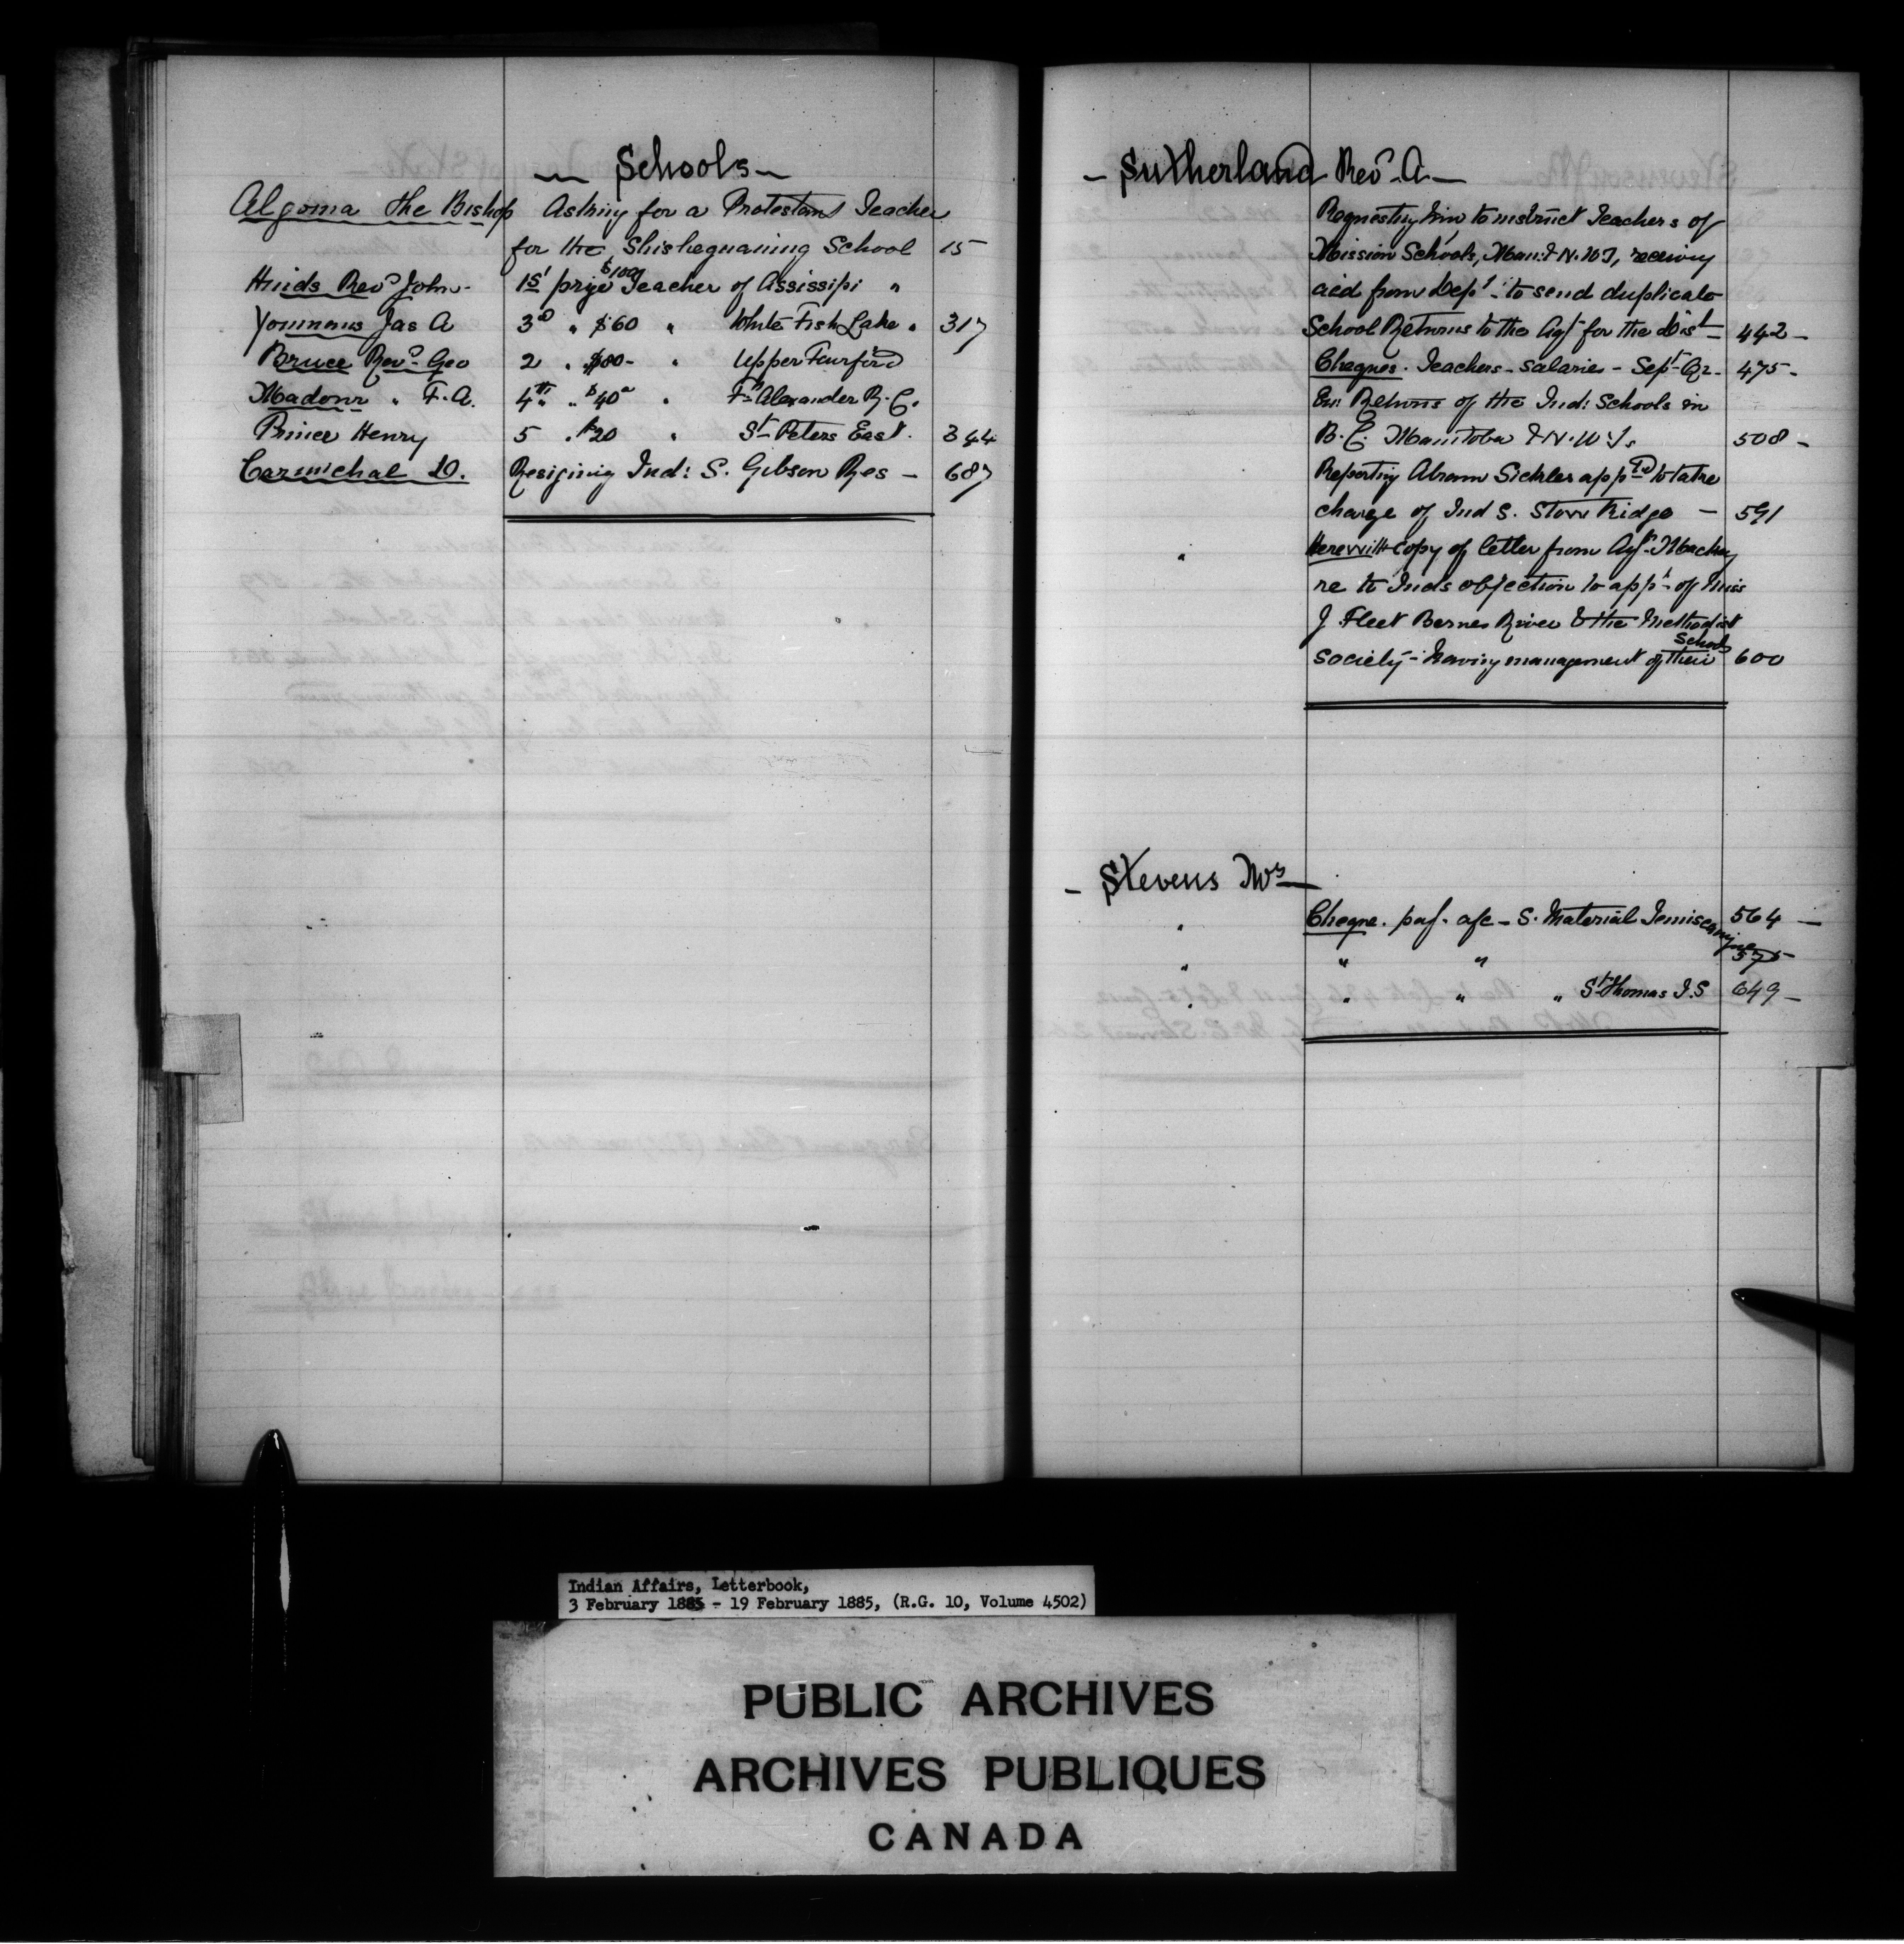 Schools
Algoma the Bishop Asking for a Protestant Teacher
for the Shisheguaning School 15
Hinds Revd John 1st prize $100 Teacher of Assissipi "
Youmans Jas A 3d " $60 " White Fish Lake " 317
Bruce Revd Geo 2 " $80 - " Upper Fairford
Madour " F. A. 4th " $40 " " Ft Alexander R. C.
Prince Henry 5 " $20 " St Peters East. 344
Carmichal D. Resigning Ind: S. Gibson Res - 687
- Sutherland Revd A -
Requesting him to instruct Teachers of
Mission Schools, Man: & N.W.T, receiving
aid from Dept - to send duplicate
School Returns to the Agt for the Dist 442 -
Cheques. Teachers - Salaries - Sept Qr - 475 -
En: Returns of the Ind: Schools in
B. C. Manitoba & N.W.T. 508 -
Reporting Abram Sickles appd to take
charge of Ind S. Stone Ridge - 591
" Herewith copy of letter from Agt Mackay
re to Inds objection to appt of Miss
J Fleet Bernes River & the Methodist
Society - having management of their Schools 600
- Stevens Mrs -
" Cheque. pay. a/c - S. Material Temiscamingue 564 -
" " " 575
" " " " St Thomas I.S 649 -
Indian Affairs, Letterbook,
3 February 1885 - 19 February 1885, (R.G. 10, Volume 4502)
PUBLIC ARCHIVES
ARCHIVES PUBLIQUES
CANADA